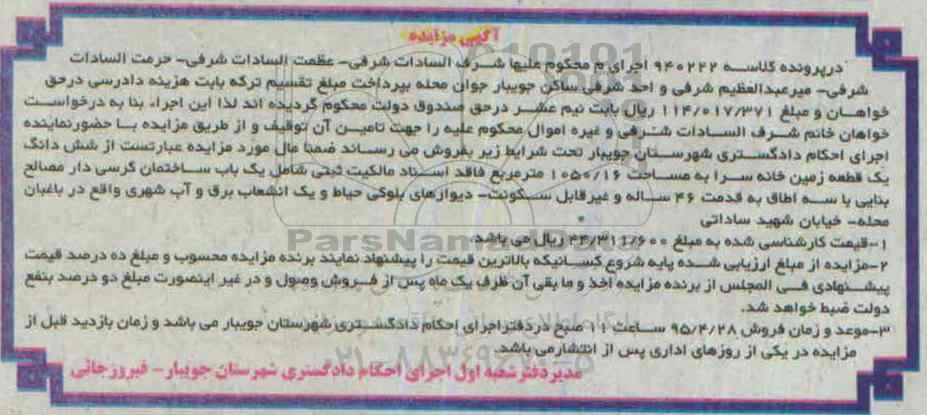 آگهی مزایده
درپرونده کلاسه ۹۴۰۲۲۲ اجرای م محکوم علیها شرف السادات شرفی- عظمت السادات شرفی- حرمت السادات
شرفی- میرعبدالعظیم شرفی و احد شرفی ساکن جویبار جوان محله بپرداخت مبلغ تقسیم ترکه بابت هزینه دادرسی درحق
خواهان و مبلغ ۱۱۴/۰۱۷/۳۷۱ ریال بابت نیم عشر درحق صندوق دولت محکوم گردیده اند لذا این اجراء بنا به درخواست
خواهان خانم شرف السادات شرفی و غیره اموال محکوم علیه را جهت تامین آن توقیف و از طریق مزایده با حضورنماینده
اجرای احکام دادگستری شهرستان جویبار تحت شرایط زیر بفروش می رساند ضمنا مال مورد مزایده عبارتست از شش دانگ
یک قطعه زمین خانه سرا به مساحت ۱۰۵۰/۱۶ مترمربع فاقد اسناد مالکیت ثبتی شامل یک باب ساختمان کرسی دار مصالح
بنایی با سه اطاق به قدمت ۴۶ ساله و غیرقابل سکونت- دیوارهای بلوکی حیاط و یک انشعاب برق و آب شهری واقع در باغبان
محله- خیابان شهید ساداتی
۱-قیمت کارشناسی شده به مبلغ ریال می باشد.
۲-مزایده از مبلغ ارزیابی شده پایه شروع کسانیکه بالاترین قیمت را پیشنهاد نمایند برنده مزایده محسوب و مبلغ ده درصد قیمت
پیشنهادی فی المجلس از برنده مزایده اخذ و ما بقی آن ظرف یک ماه پس از فروش وصول و در غیر اینصورت مبلغ دو درصد بنفع
دولت ضبط خواهد شد.
۳-موعد و زمان فروش ۹۵/۴/۲۸ ساعت ۱۱ صبح دردفتراجرای احکام دادگستری شهرستان جویبار می باشد و زمان بازدید قبل از
مزایده در یکی از روزهای اداری پس از انتشارمی باشد.
مدیردفترشعبه اول اجرای احکام دادگستری شهرستان جویبار- فیروزجائی
ParsNamadData